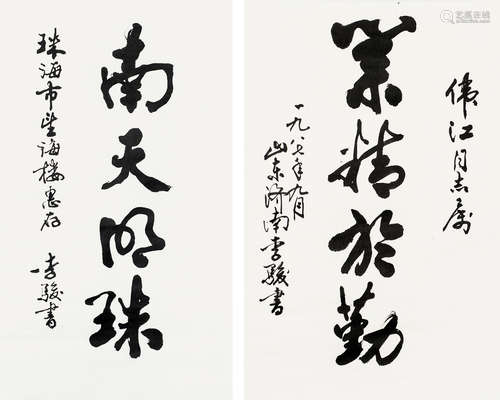 伟江同志属
业精於勤
一九八七年九月
山东济南李骏书
南天明珠
珠海市望海楼惠存
李骏书